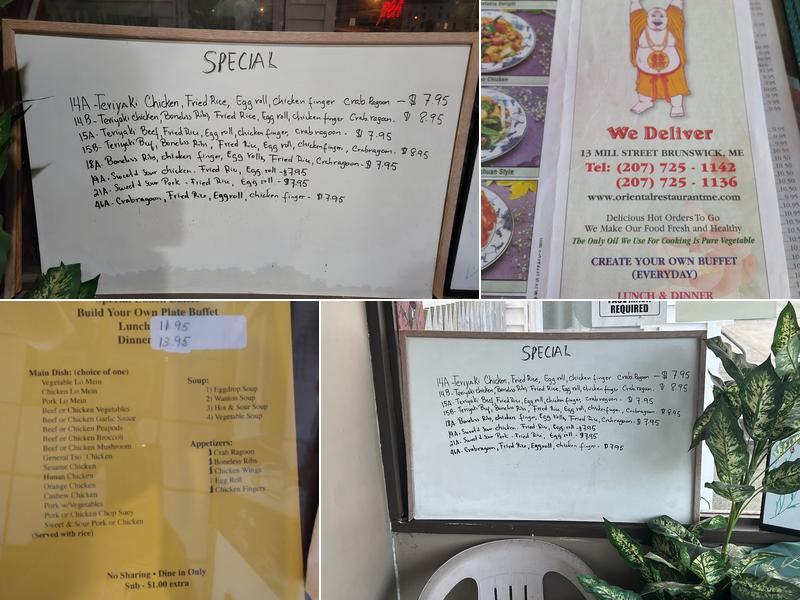 SPECIAL
14A-Teriyaki Chicken, Fried Rice, Egg roll, chicken finger Crab Ragoon - $ 7.95
14B-Teriyaki chicken, Boneless Ribs, Fried Rice, Egg roll, chicken finger Crab ragoon. $ 8.95
15A-Teriyaki Beef, Fried Rice, Egg roll, chicken finger, Crab ragoon. $ 7.95
15B-Teriyaki Boneless Ribs, Fried Rice, Egg roll, chicken finger, Crab ragoon - $ 8.95
18A Boneless Ribs, chicken finger, Egg Rolls, Fried Rice, Crab ragoon - $ 7.95
19A-Sweet & Sour chicken. Fried Rice, Egg roll - $7.95
21A-Sweet & Sour Pork - Fried Rice, Egg roll - $7.95
46A-Crab ragoon, Fried Rice, Egg roll, chicken finger - $ 7.95
table Delight
Chicken
huan Style
We Deliver
13 MILL STREET BRUNSWICK, ME
Tel: (207) 725 - 1142
(207) 725 - 1136
www.orientalrestaurantme.com
Delicious Hot Orders To Go
We Make Our Food Fresh and Healthy
The Only Oil We Use For Cooking Is Pure Vegetable
CREATE YOUR OWN BUFFET
(EVERYDAY)
LUNCH & DINNER
Build Your Own Plate Buffet
Lunch 11.95
Dinner 13.95
Main Dish: (choice of one)
Vegetable Lo Mein
Chicken Lo Mein
Pork Lo Mein
Beef or Chicken Vegetables
Beef or Chicken Garlic Sauce
Beef or Chicken Peapods
Beef or Chicken Broccoli
Beef or Chicken Mushroom
General Tso' Chicken
Sesame Chicken
Hunan Chicken
Orange Chicken
Cashew Chicken
Pork w/Vegetables
Pork or Chicken Chop Suey
Sweet & Sour Pork or Chicken
(Served with rice)
Soup:
1) Eggdrop Soup
2) Wanton Soup
3) Hot & Sour Soup
4) Vegetable Soup
Appetizers:
1 Crab Ragoon
1 Boneless Ribs
1 Chicken Wings
1 Egg Roll
1 Chicken Fingers
No Sharing • Dine in Only
Sub - $1.00 extra
FACE MASK
REQUIRED
SPECIAL
14A-Teriyaki Chicken, Fried Rice, Egg roll, chicken finger Crab Ragoon - $ 7.95
14B-Teriyaki chicken, Boneless Ribs, Fried Rice, Egg roll, chicken finger Crab ragoon. $ 8.95
15A-Teriyaki Beef, Fried Rice, Egg roll, chicken finger, Crab ragoon. $ 7.95
15B-Teriyaki Boneless Ribs, Fried Rice, Egg roll, chicken finger, Crab ragoon - $ 8.95
18A Boneless Ribs, chicken finger, Egg Rolls, Fried Rice, Crab ragoon - $ 7.95
19A-Sweet & Sour chicken. Fried Rice, Egg roll - $7.95
21A-Sweet & Sour Pork - Fried Rice, Egg roll - $7.95
46A-Crab ragoon, Fried Rice, Egg roll, chicken finger - $ 7.95